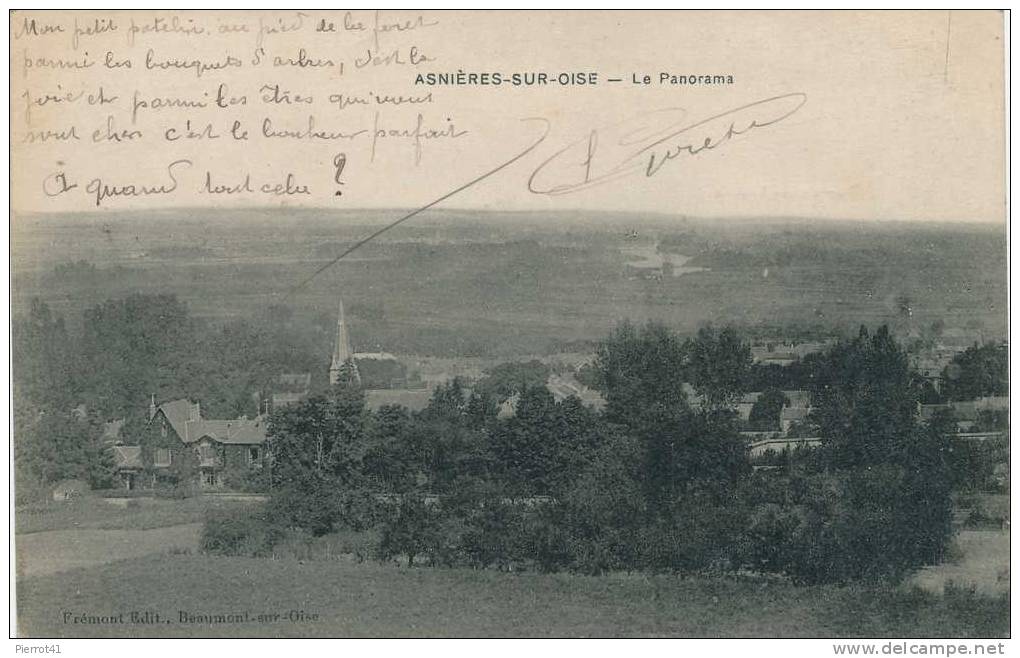 Mon petit patelin, au pied de la foret
parmi les bouquets d'arbres, c'est la
joie et parmi les êtres qui vous
sont cher c'est le bonheur parfait
A quand tout cela ?
ASNIÈRES-SUR-OISE — Le Panorama
Frémont Edit., Beaumont-sur-Oise
Pierrot41
www.delcampe.net